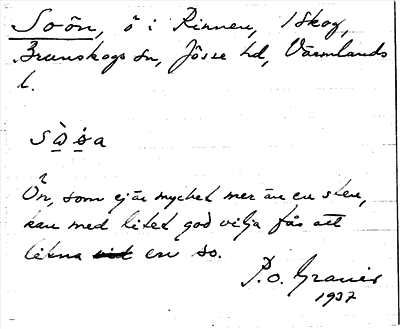 Soön, ö i Rinnen, 1 Skog,
Brunskogs sn, Jösse hd, Värmlands
l.
sò̱ö̱a
Ön, som ej är mycket mer än en sten,
kan med litet god vilja fås att
likna en so.
P.O. Granér
1937